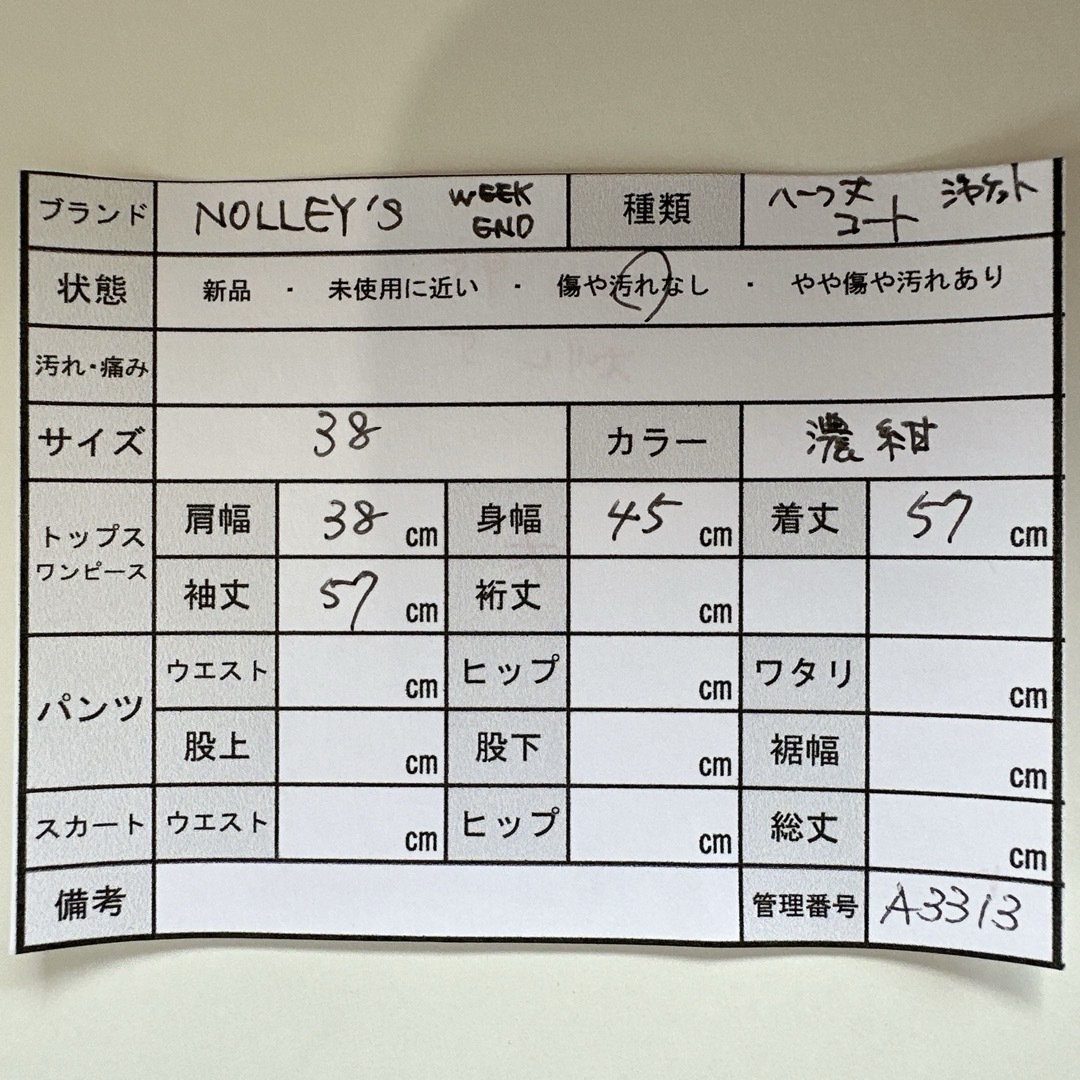 ブランド NOLLEY'S WEEK END 種類 ハーフ丈 コート ジャケット
状態 新品 ・ 未使用に近い ・ 傷や汚れなし ・ やや傷や汚れあり
汚れ・痛み
サイズ 38 カラー 濃紺
トップス ワンピース 肩幅 38 cm 身幅 45 cm 着丈 57 cm
袖丈 57 cm 裄丈 cm
パンツ ウエスト cm ヒップ cm ワタリ cm
股上 cm 股下 cm 裾幅 cm
スカート ウエスト cm ヒップ cm 総丈 cm
備考 管理番号 A3313